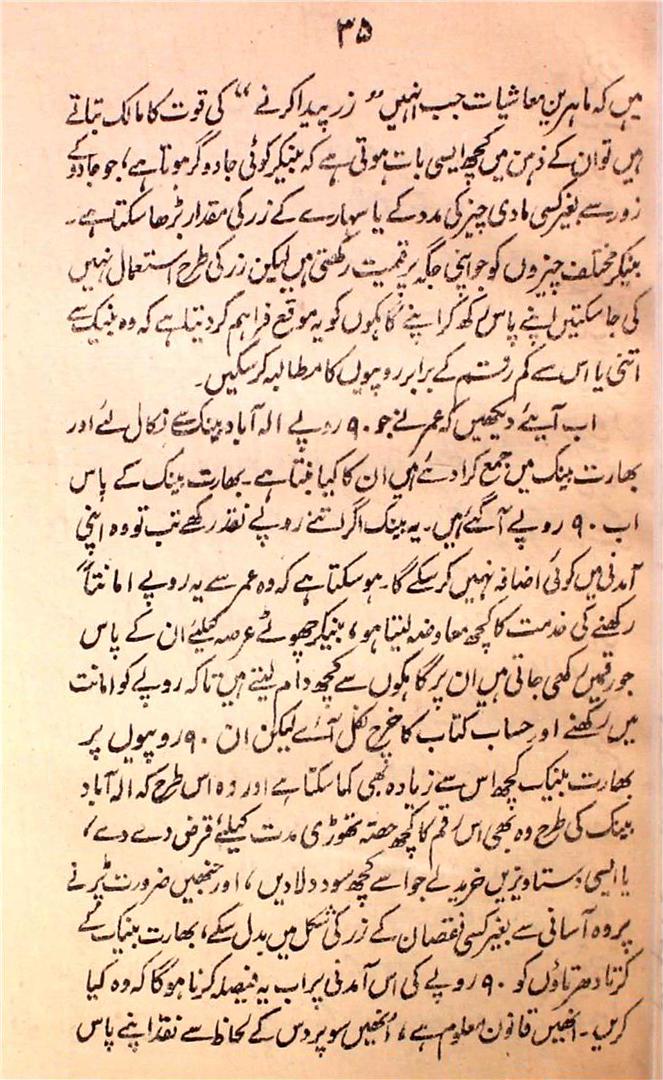 ۳۵
ہیں کہ ماہرین معاشیات جب انہیں ”زر پیدا کرنے“ کی قوت کا مالک بتاتے
ہیں تو ان کے ذہن میں کچھ ایسی بات ہوتی ہے کہ بینکر کوئی جادوگر ہوتا ہے، جو جادو کے
زور سے بغیر کسی مادی چیز کی مدد کے یا سہارے کے زر کی مقدار بڑھا سکتا ہے۔
بینکر مختلف چیزوں کو جو اپنی جگہ پر قیمت رکھتی ہیں لیکن زر کی طرح استعمال نہیں
کی جا سکتیں اپنے پاس رکھ کر اپنے گاہکوں کو یہ موقع فراہم کر دیتا ہے کہ وہ بینک سے
اتنی یا اس سے کم رقم کے برابر روپیوں کا مطالبہ کر سکیں۔
اب آئیے دیکھیں کہ عمر نے جو ۹۰ روپے الہ آباد بینک سے نکال لئے اور
بھارت بینک میں جمع کرا دئے ہیں ان کا کیا بنتا ہے۔ بھارت بینک کے پاس
اب ۹۰ روپے آ گئے ہیں۔ یہ بینک اگر اتنے روپے نقد رکھے تب تو وہ اپنی
آمدنی میں کوئی اضافہ نہیں کر سکے گا۔ ہو سکتا ہے کہ وہ عمر سے یہ روپے امانتاً
رکھنے کی خدمت کا کچھ معاوضہ لیتا ہو، بینکر چھوٹے عرصہ کیلئے ان کے پاس
جو رقمیں رکھی جاتی ہیں ان پر گاہکوں سے کچھ دام لیتے ہیں تاکہ روپے کو امانت
میں رکھنے اور حساب کتاب کا خرچ نکل آئے لیکن ان ۹۰ روپیوں پر
بھارت بینک کچھ اس سے زیادہ بھی کما سکتا ہے اور وہ اس طرح کہ الہ آباد
بینک کی طرح وہ بھی اس رقم کا کچھ حصہ تھوڑی مدت کیلئے قرض دے دے،
یا ایسی دستاویزیں خرید لے جو اسے کچھ سود دلا دیں، اور جنھیں ضرورت پڑنے
پر وہ آسانی سے بغیر کسی نقصان کے زر کی شکل میں بدل سکے، بھارت بینک کے
کرتا دھرتاؤں کو ۹۰ روپے کی اس آمدنی پر اب یہ فیصلہ کرنا ہوگا کہ وہ کیا
کریں۔ انھیں قانون معلوم ہے، انھیں سو پر دس کے لحاظ سے نقد اپنے پاس